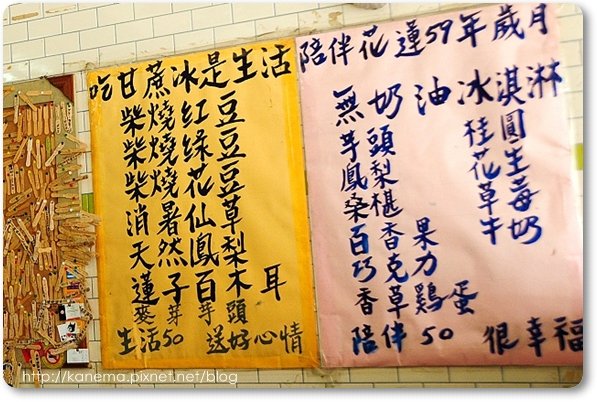 吃甘蔗冰是生活
柴燒紅豆
柴燒綠豆
柴燒花豆
消暑仙草
天然鳳梨
蓮子百木耳
麥芽芋頭
生活50 送好心情
陪伴花蓮59年歲月
無奶油冰淇淋
芋頭 桂圓
鳳梨 花生
桑椹 草莓
百香果 牛奶
巧克力
香草雞蛋
陪伴50 很幸福
http://kanema.pixnet.net/blog